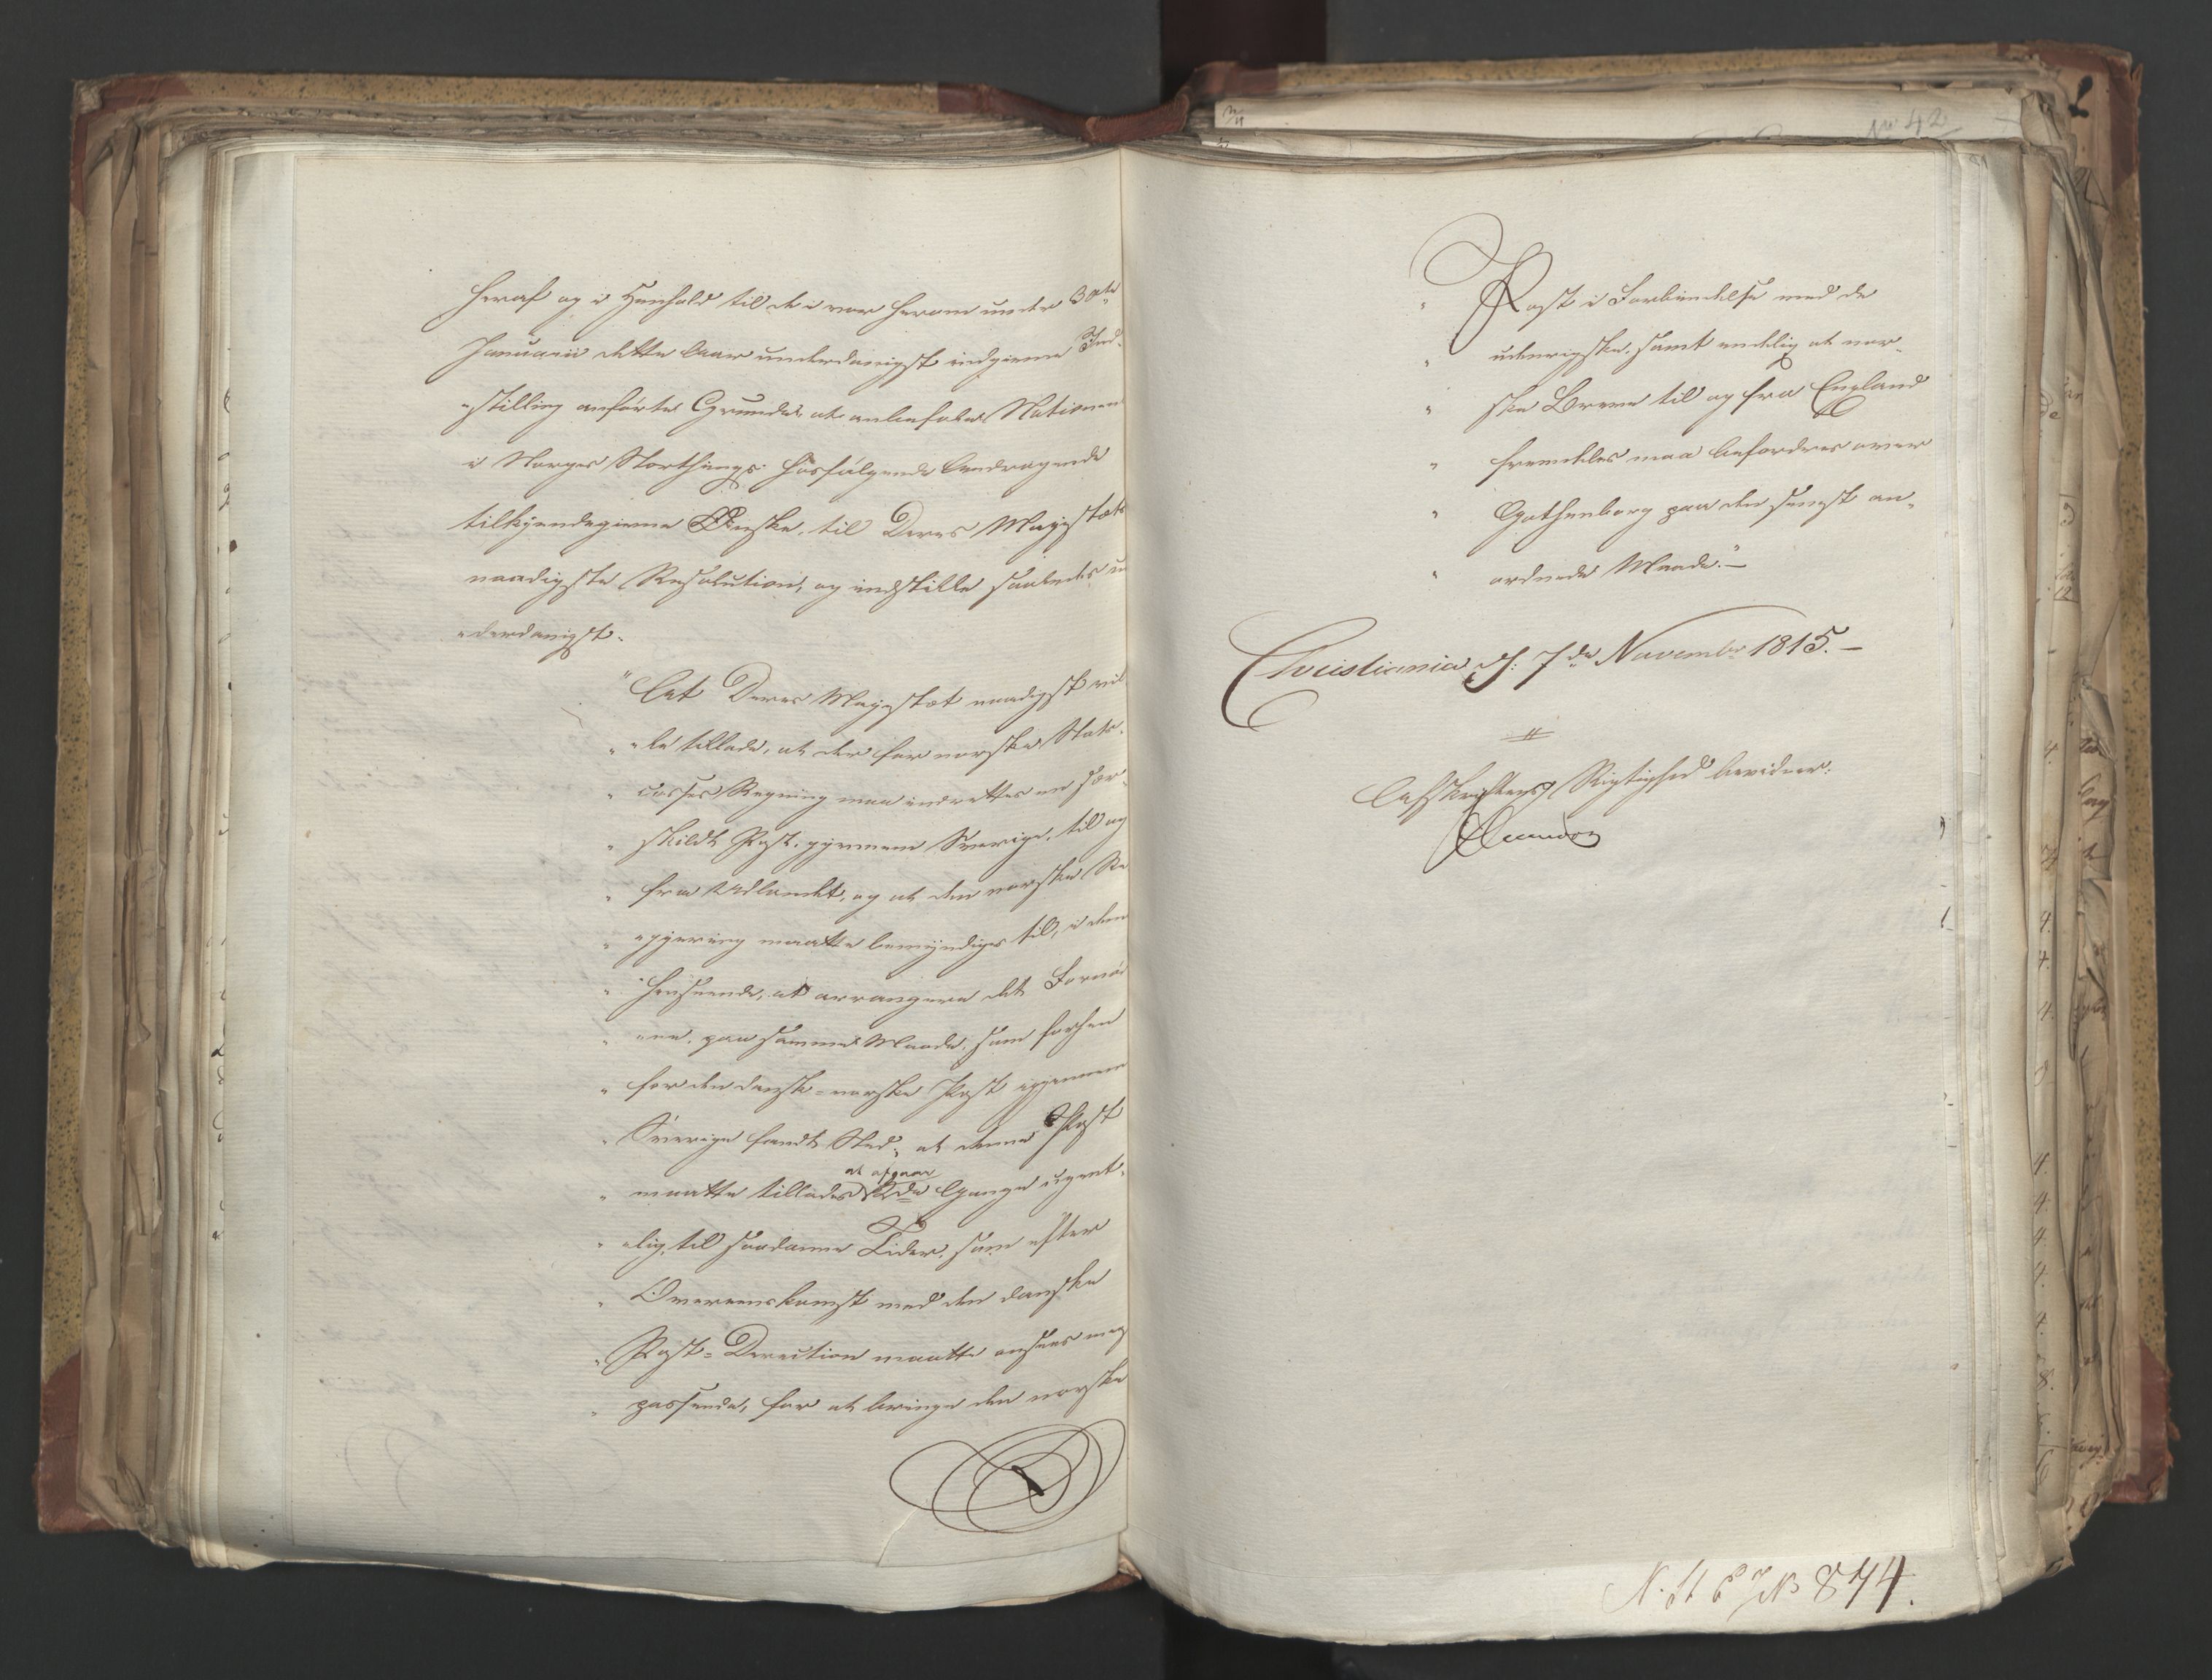 heraf og i Henhold til de i vor herom under 30te
Januarii dette Aar underdanigst indgivne Ind-
"stilling anførte Grunde, at anbefales Nationen
i Norges Storthings hosfølgende Andragende
tilkjendegivne Ønske, til Deres Majestæts
naadigste Resolution, og indstille saaledes un
"derdanigst:
"At Deres Majestæt naadigst vil
" "le tillade, at der for norske Stats-
" Casses Regning maa indrettes en sær-
" skildt Post, gjennem Sverige, til og
" fra Udlandet, og at den norske Re
" "gjering maatte bemyndiges til, i den
" Henseende, at arrangere det Fornød
" "ne, paa samme Maade, som forhen
" for den dansk-norske Post igjennem
" Sverige fandt Sted, at denne Post
at afgaae
" maatte tillades 2de Gange ugent-
" "lig, til saadanne Tider, som efter
" Overeenskomst med den danske
" Post-Direction maatte ansees meest
" passende, for at bringe den norske
No 42
" Post i Forbindelse med de
" udenrigske, samt endelig at nor-
" ske Breve til og fra England
" fremdeles maa befordres over
" Gothenborg paa den senest an-
" ordnede Maade."–
Christiania, d: 7de Novembr 1815.–
Afskriftens Rigtighed bevidner:
N. St 6 No 874.